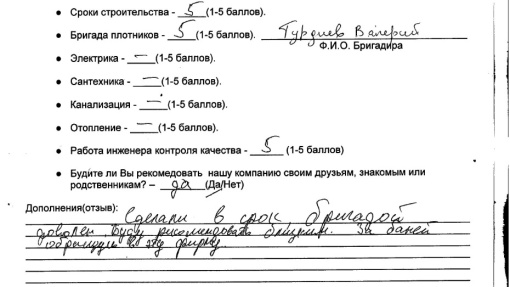 • Сроки строительства - 5 (1-5 баллов).
• Бригада плотников - 5 (1-5 баллов). Гурдиев Валерий
Ф.И.О. Бригадира
• Электрика - — (1-5 баллов).
• Сантехника - — (1-5 баллов).
• Канализация - — (1-5 баллов).
• Отопление - — (1-5 баллов).
• Работа инженера контроля качества - 5 (1-5 баллов)
• Будите ли Вы рекомедовать нашу компанию своим друзьям, знакомым или
родственникам? – да (Да/Нет)
Дополнения(отзыв): Сделали в срок, бригадой
доволен буду рекомендовать близким. За баней
обращусь в эту фирму.